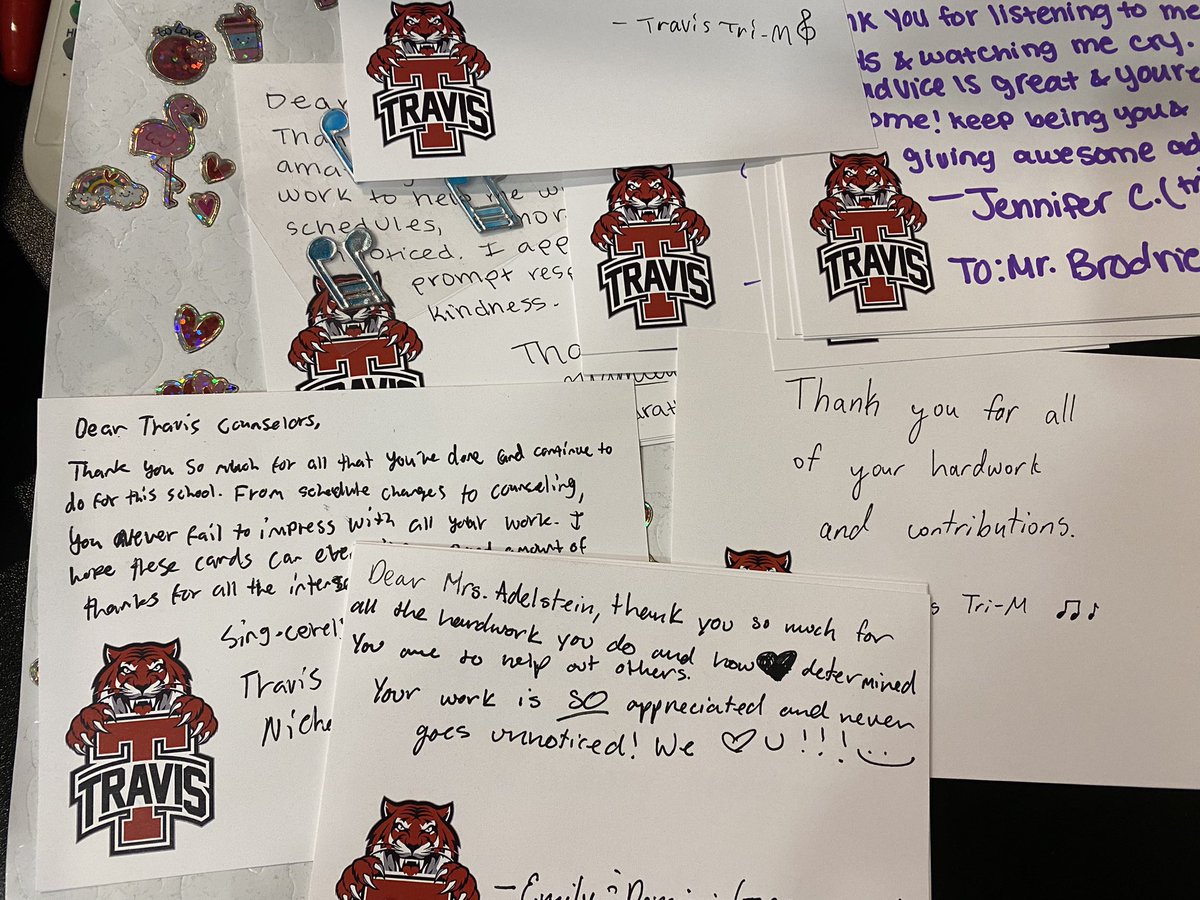 - Travis Tri-M
TRAVIS
nk you for listening to me
& watching me cry.
advice is great & you're
ome! keep being you &
giving awesome ad
- Jennifer C. (tri
To: Mr. Brodnie
TRAVIS
TRAVIS
Dear
Tha
ama
work to help me w
schedules, mor
noticed. I app
prompt resp
kindness.
Tha
TRAVIS
Dear Travis Counselors,
Thank you so much for all that you've done and continue to
do for this school. From schedule changes to counseling,
you never fail to impress with all your work. I
hope these cards can eve amount of
thanks for all the interac
Sing-cerel
Travis
Niche
TRAVIS
Thank you for all
of your hardwork
and contributions.
s Tri-M
Dear Mrs. Adelstein, thank you so much for
all the hardwork you do and how determined
you are to help out others.
Your work is SO appreciated and never
goes unnoticed! We ♡ U!!!
- Emily